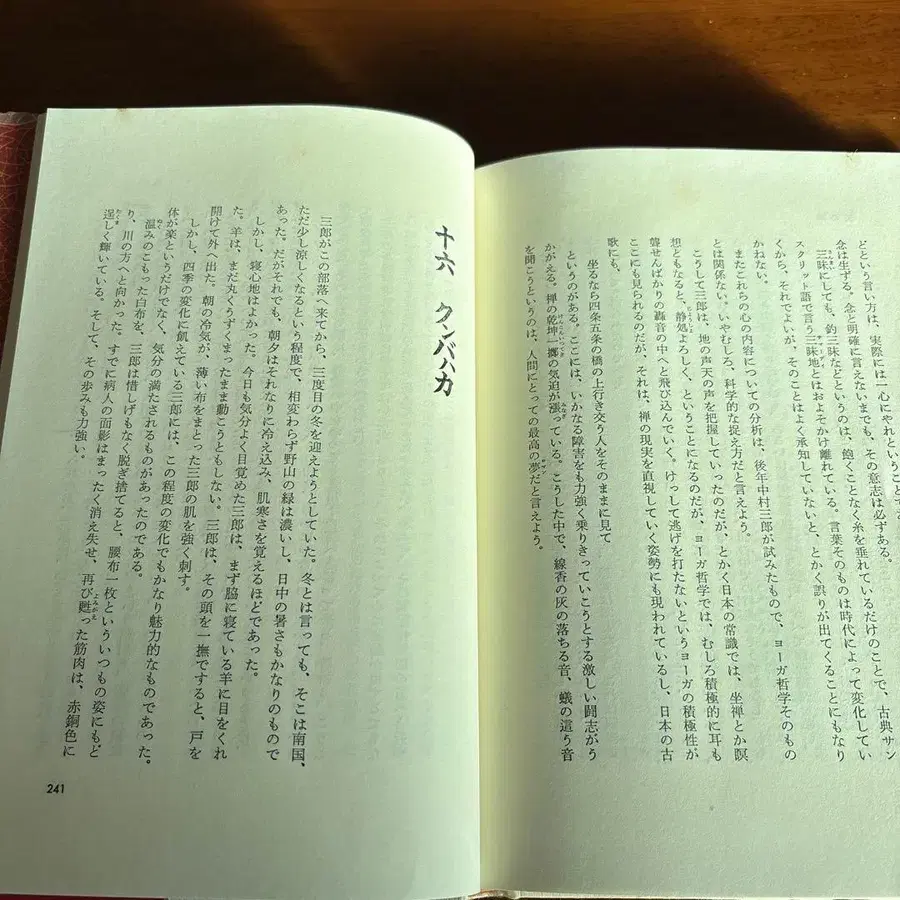 どという言い方は、実際には一心にやれということである。
念は生ずる。念と明確に言えないまでも、その意志は必ずある。
三昧にしても、釣三昧などというのは、飽くことなく糸を垂れているだけのことで、古典サン
スクリット語で言う三昧地とはおよそかけ離れている。言葉そのものは時代によって変化してい
くから、それでよいが、そのことはよく承知していないと、とかく誤りが出てくることにもなり
かねない。
またこれらの心の内容についての分析は、後年中村三郎が試みたもので、ヨーガ哲学そのもの
とは関係ない。いやむしろ、科学的な捉え方だと言えよう。
こうして三郎は、地の声天の声を把握していったのだが、とかく日本の常識では、坐禅とか瞑
想ともなると、静処よろしく、ということになるのだが、ヨーガ哲学では、むしろ積極的に耳も
聾せんばかりの轟音の中へと飛び込んでいく。けっして逃げを打たないというヨーガの積極性が
ここにも見られるのだが、それは、禅の現実を直視していく姿勢にも現われているし、日本の古
歌にも、
坐るなら四条五条の橋の上行き交う人をそのままに見て
というのがある。ここには、いかなる障害をも力強く乗りきっていこうとする激しい闘志がう
かがえる。禅の乾坤一擲の気迫が漲っている。こうした中で、線香の灰の落ちる音、蟻の這う音
を聞こうというのは、人間にとっての最高の夢だと言えよう。
十六 クンバハカ
三郎がこの部落へ来てから、三度目の冬を迎えようとしていた。冬とは言っても、そこは南国、
ただ少し涼しくなるという程度で、相変わらず野山の緑は濃いし、日中の暑さもかなりのもので
あった。だがそれでも、朝夕はそれなりに冷え込み、肌寒さを覚えるほどであった。
しかし、寝心地はよかった。今日も気分よく目覚めた三郎は、まず脇に寝ている羊に目をくれ
た。羊は、まだ丸くうずくまったまま動こうともしない。三郎は、その頭を一撫ですると、戸を
開けて外へ出た。朝の冷気が、薄い布をまとった三郎の肌を強く刺す。
しかし、四季の変化に飢えている三郎には、この程度の変化でもかなり魅力的なものであった。
体が楽というだけでなく、気分の満たされるものがあったのである。
温みのこもった白布を、三郎は惜しげもなく脱ぎ捨てると、腰布一枚といういつもの姿にもど
り、川の方へと向かった。すでに病人の面影はまったく消え失せ、再び甦った筋肉は、赤銅色に
逞しく輝いている。そして、その歩みも力強い。
241